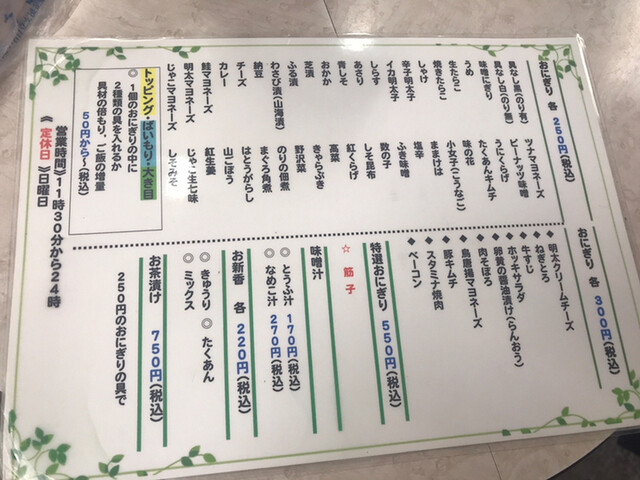 おにぎり 各 250円(税込)
具なし黒(のり有)
具なし白(のり無)
味噌にぎり
うめ
生たらこ
焼きたらこ
しゃけ
辛子明太子
イカ明太子
しらす
あさり
青しそ
おかか
芝漬
ふる漬
わさび漬(山海漬)
納豆
チーズ
カレー
鮭マヨネーズ
明太マヨネーズ
じゃこマヨネーズ
ツナマヨネーズ
ピーナッツ味噌
うにくらげ
たくあんキムチ
味の花
小女子(こうなご)
ままけは
塩辛
ふき味噌
数の子
しそ昆布
紅くらげ
高菜
きゃらぶき
野沢菜
のりの佃煮
まぐろ角煮
はとうがらし
山ごぼう
紅生姜
じゃこ生七味
しそみそ
トッピング・ばいもり・大き目
◎ 1個のおにぎりの中に
2種類の具を入れるか
具材の倍もり、ご飯の増量
50円から〜(税込)
営業時間》11時30分から24時
《 定休日 》日曜日
おにぎり 各 300円(税込)
◆ 明太クリームチーズ
◆ ねぎとろ
◆ 牛すじ
◆ ホッキサラダ
◆ 卵黄の醤油漬け(らんおう)
◆ 肉そぼろ
◆ 鳥唐揚マヨネーズ
◆ 豚キムチ
◆ スタミナ焼肉
◆ ベーコン
特選おにぎり 550円(税込)
☆ 筋子
味噌汁
◎ とうふ汁 170円(税込)
◎ なめこ汁 270円(税込)
お新香 各 220円(税込)
◎ きゅうり ◎ たくあん
◎ ミックス
お茶漬け 750円(税込)
250円のおにぎりの具で